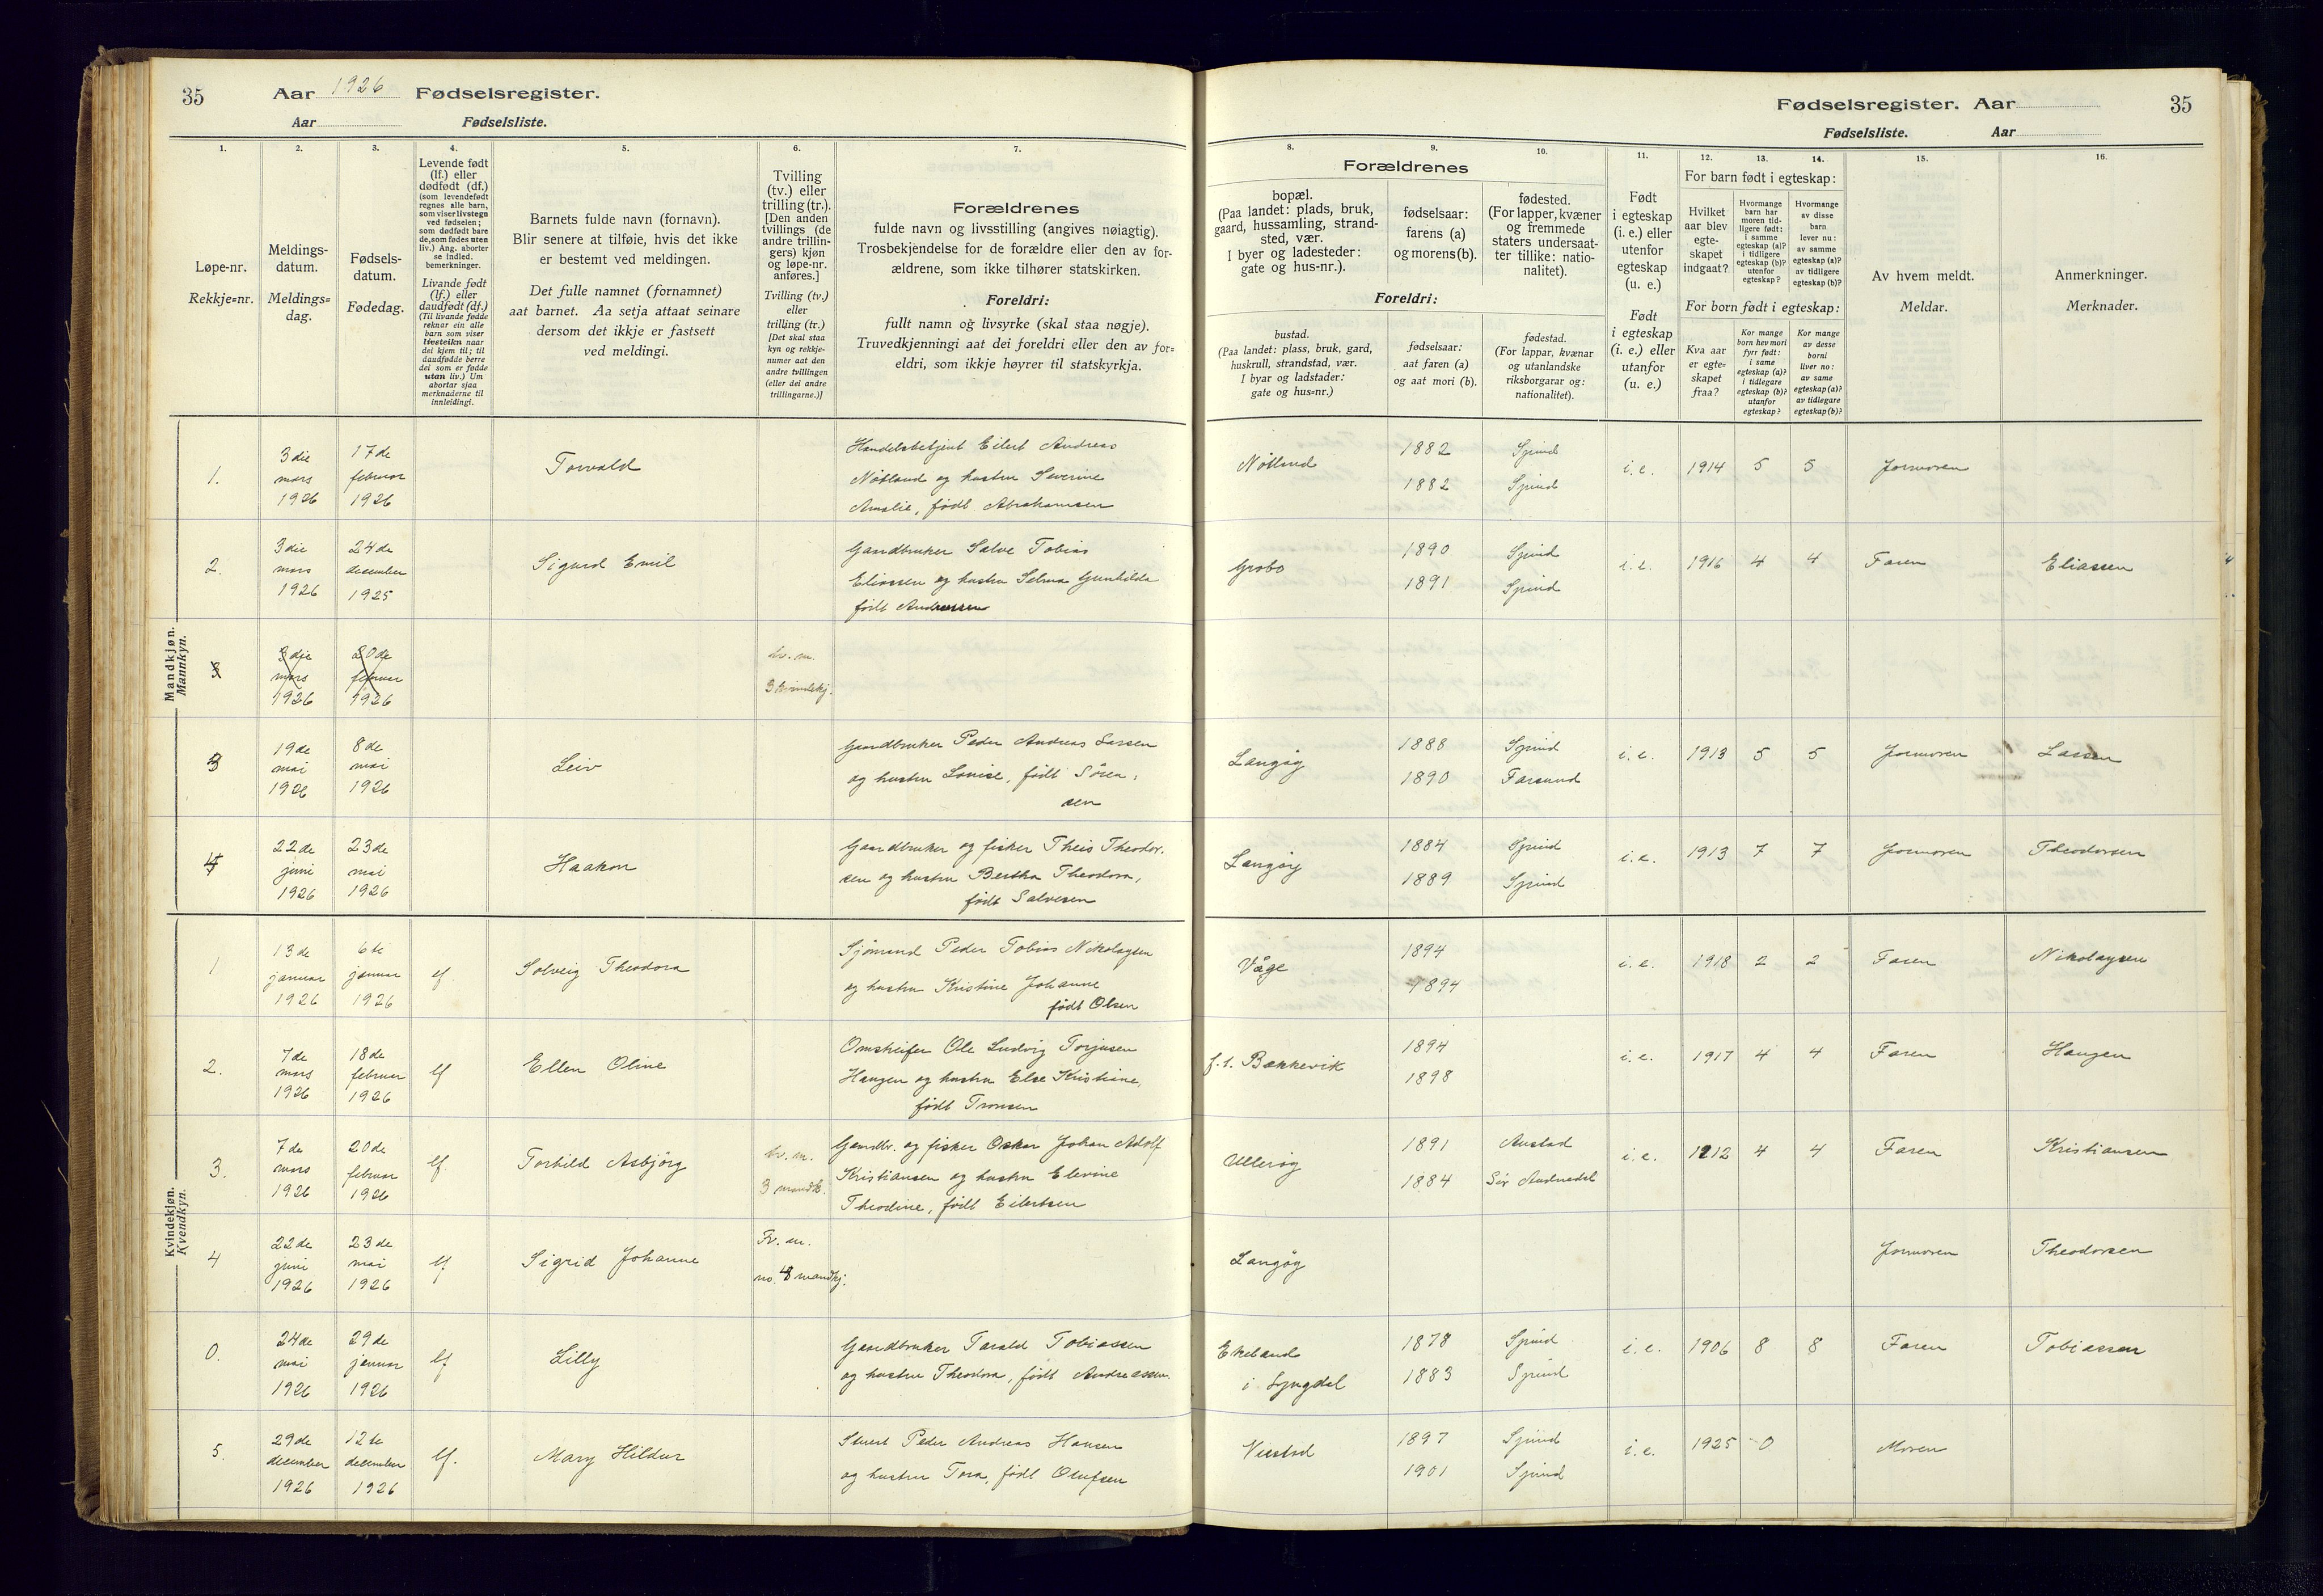 35
Aar 1926 Fødselsregister.
Aar Fødselsliste.
Fødselsregister. Aar
35
Fødselsliste. Aar
1.
2.
3.
4.
5.
6.
7.
8.
9.
10.
11.
12.
13.
14.
15.
16.
Løpe-nr.
Rekkje=nr.
Meldings-
datum.
Meldings=
dag.
Fødsels-
datum.
Fødedag.
Levende født
(lf.) eller
dødfødt (df.)
(som levendefødt
regnes alle barn,
som viser livstegn
ved fødselen;
som dødfødt bare
de, som fødes uten
liv.) Ang. aborter
se indled.
bemerkninger.
Livande født
(lf.) eller
daudfødt (df.)
(Til livande fødde
reknar ein alle
barn som viser
livsteikn naar
dei kjem til; til
daudfødde berre
dei som er fødde
utan liv.) Um
abortar sjaa
merknaderne til
innleidingi.
Barnets fulde navn (fornavn).
Blir senere at tilføie, hvis det ikke
er bestemt ved meldingen.
Det fulle namnet (fornamnet)
aat barnet. Aa setja attaat seinare
dersom det ikkje er fastsett
ved meldingi.
Tvilling
(tv.) eller
trilling (tr.).
[Den anden
tvillings (de
andre trillin-
gers) kjøn
og løpe-nr.
anføres.]
Tvilling (tv.)
eller
trilling (tr.)
[Det skal staa
kyn og rekkje-
numer aat den
andre tvillingen
(eller dei andre
trillingarne.)]
Forældrenes
fulde navn og livsstilling (angives nøiagtig).
Trosbekjendelse for de forældre eller den av for-
ældrene, som ikke tilhører statskirken.
Foreldri:
fullt namn og livsyrke (skal staa nøgje).
Truvedkjenningi aat dei foreldri eller den av for=
eldri, som ikkje høyrer til statskyrkja.
Forældrenes
bopæl.
(Paa landet: plads, bruk,
gaard, hussamling, strand-
sted, vær.
I byer og ladesteder:
gate og hus-nr.).
fødselsaar:
farens (a)
og morens (b).
fødested.
(For lapper, kvæner
og fremmede
staters undersaat-
ter tillike: natio-
nalitet).
Foreldri:
bustad.
(Paa landet: plass, bruk, gard,
huskrull, strandstad, vær.
I byar og ladstader:
gate og hus=nr.)
fødselsaar:
aat faren (a)
og aat mori (b).
fødestad.
(For lappar, kvænar
og utanlandske
riksborgarar og:
nationalitet).
Født
i egteskap
(i. e.) eller
utenfor
egteskap
(u. e.)
Født
i egteskap
(i. e.) eller
utanfor
(u. e.)
For barn født i egteskap:
Hvilket
aar blev
egte-
skapet
indgaat?
Hvormange
barn har
moren tid-
ligere født:
i samme
egteskap (a)?
i tidligere
egteskap (b)?
utenfor
egteskap?
Hvormange
av disse
barn
lever nu:
av samme
egteskap (a)?
av tidligere
egteskap (b)?
For born født i egteskap:
Kva aar
er egte=
skapet
fraa?
Kor mange
born hev mori
fyrr født:
i same
egteskap (a)?
i tidlegare
egteskap (b)?
utanfor
egteskap?
Kor mange
av desse
borni
liver no:
av same
egteskap (a)?
av tidlegare
egteskap (b)?
Av hvem meldt.
Meldar.
Anmerkninger.
Merknader.
Mandkjøn.
Mannkyn.
1. 3die mars 1926 17de februar 1926 Torvald
Handelsbetjent Eilert Andreas
Nøtland og hustru Severine
Amalie, født Abrahamsen
Nøtland 1882 1882 Spind Spind i.e. 1914 5 5 Jormoren
2. 3die mars 1926 24de desember 1925 Sigurd Emil
Gaardbruker Salve Tobias
Eliassen og hustru Selma Gunhilda
født Andreassen
Grobo 1890 1891 Spind Spind i.e. 1916 4 4 Faren Eliassen
3 3die mars 1926 20de februar 1926 tv. m.
3 kvindekj.
3 19de mai 1926 8de mai 1926 Leiv
Gaardbruker Peder Andreas Larsen
og hustru Louise, født Søren-
sen
Langøy 1888 1890 Spind Farsund i.e. 1913 5 5 Jormoren Larsen
4 22de juni 1926 23de mai 1926 Haakon
Gaardbruker og fisker Theis Theodor-
sen og hustru Bertha Theodora,
født Salvesen
Langøy 1884 1889 Spind Spind i.e. 1913 7 7 Jormoren Theodorsen
Kvindekjøn.
Kvendkyn.
1 13de januar 1926 6te januar 1926 lf Solveig Theodora
Sjømand Peder Tobias Nikolaysen
og hustru Kristine Johanne
født Olsen
Våge 1894 1894 i.e. 1918 2 2 Faren Nikolaysen
2. 7de mars 1926 18de februar 1926 lf Ellen Oline
Omstreifer Ole Ludvig Torjusen
Haugen og hustru Else Kristiane,
født Tronsen
f.t. Bækkevik 1894 1898 i.e. 1917 4 4 Faren Haugen
3. 7de mars 1926 20de februar 1926 lf Torhild Asbjørg tv. m.
3 mandk.
Gaardbr. og fisker Oskar Johan Adolf
Kristiansen og hustru Elevine
Theodine, født Eilertsen
Ullerøy 1891 1884 Austad Sør Audnedal i.e. 1912 4 4 Faren Kristiansen
4 22de juni 1926 23de mai 1926 lf Sigrid Johanne Tv. m.
no. 4 mandkj.
Langøy Jormoren Theodorsen
0. 24de mai 1926 29de januar 1926 lf Lilly
Gaardbruker Tarald Tobiassen
og hustru Theodora, født Andreassen.
Ekeland
i Lyngdal
1878 1883 Spind Spind i.e. 1906 8 8 Faren Tobiassen
5. 29de december 1926 12te december 1926 lf. Mary Hildur
Stuert Peder Andreas Hansen
og hustru Tora, født Olufsen
1897 1901 Spind Spind i.e. 1925 0 Moren